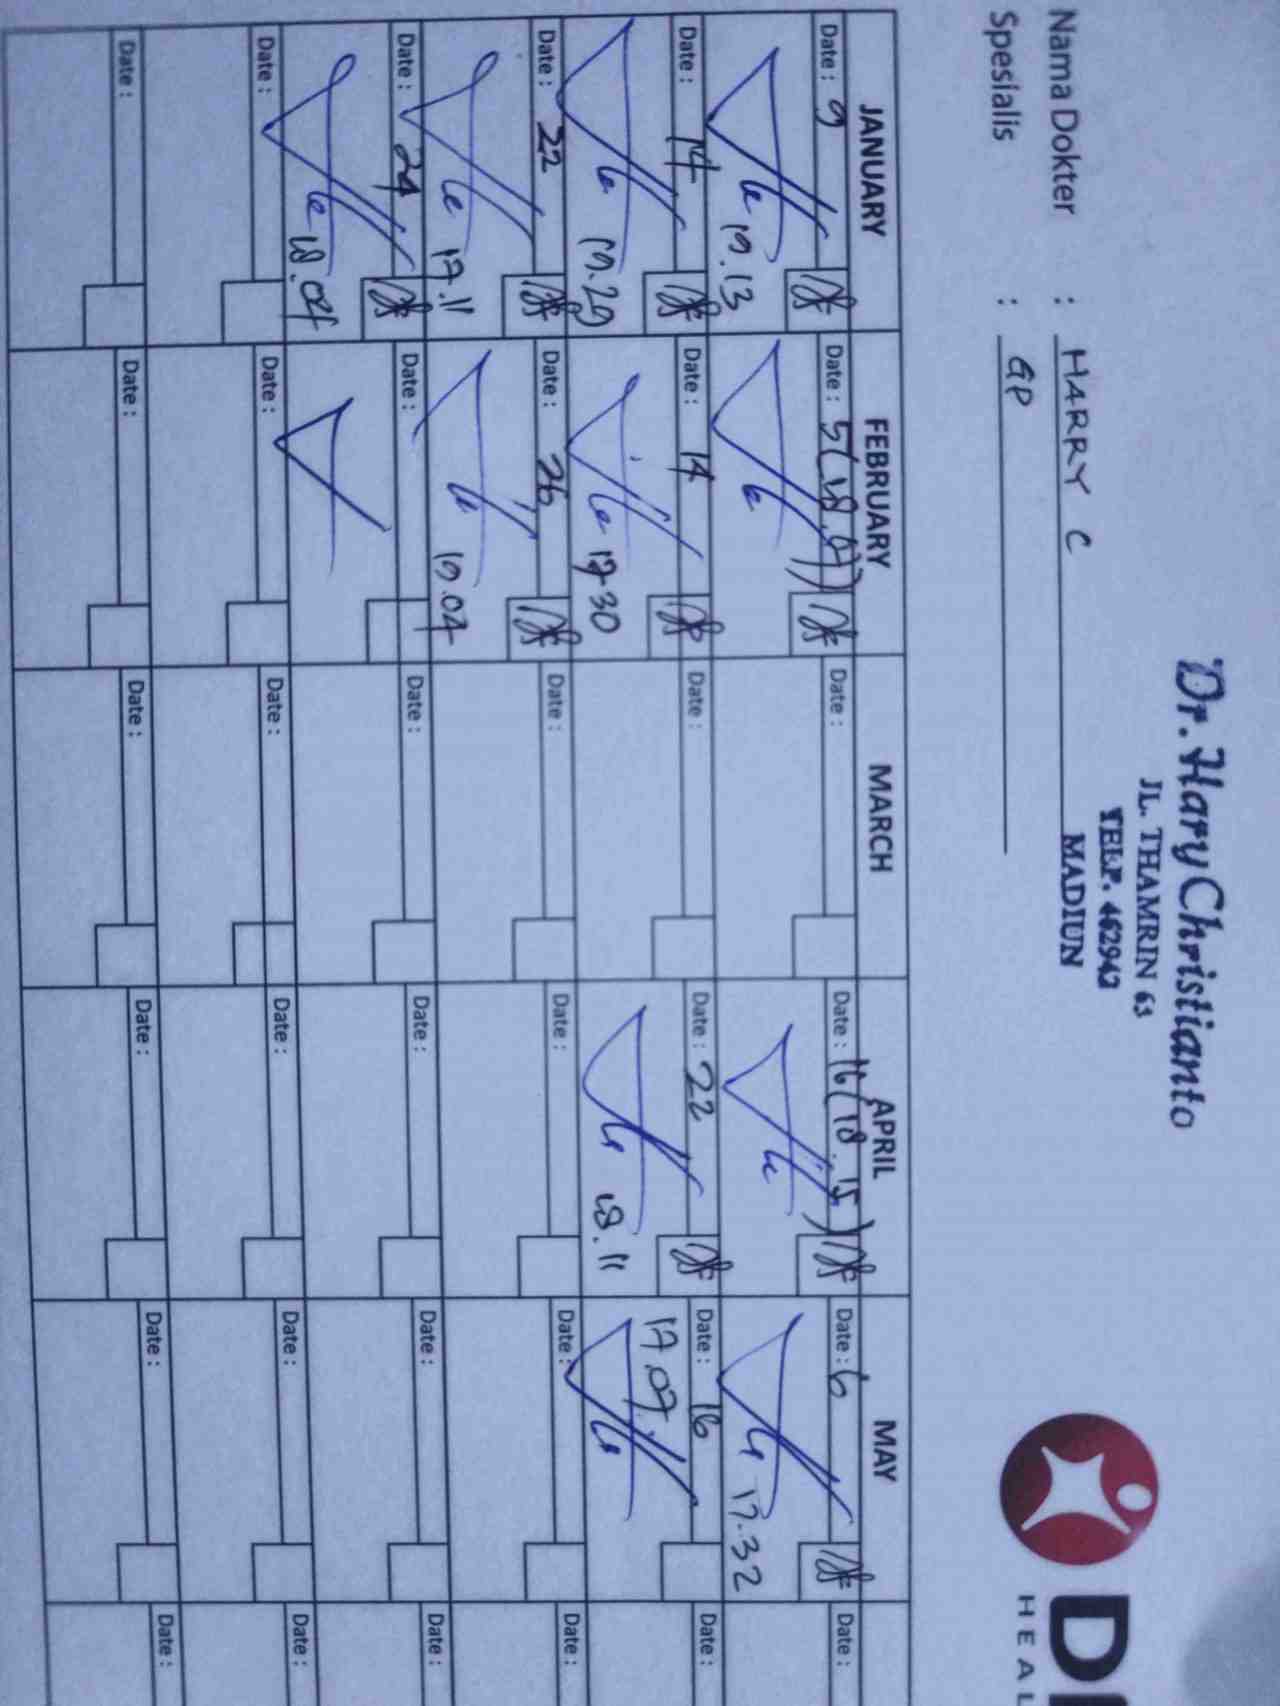 Dr. Hary Christianto
JL. THAMRIN 63
TELP. 462942
MADIUN
Nama Dokter : HARRY C
Spesialis : GP
HEAL
JANUARY FEBRUARY MARCH APRIL MAY
Date : 9 Date : 5 (18.07) Date : Date : 16 (18.15) Date : 6 Date :
19.13 17.32
Date : 14 Date : 14 Date : Date : 22 Date : 16 Date :
19.29 17.30 18.11 17.07
Date : 22 Date : 26 Date : Date : Date : Date :
17.11 19.04
Date : 24 Date : Date : Date : Date : Date :
18.04
Date : Date : Date : Date : Date : Date :
Date : Date : Date : Date : Date : Date :